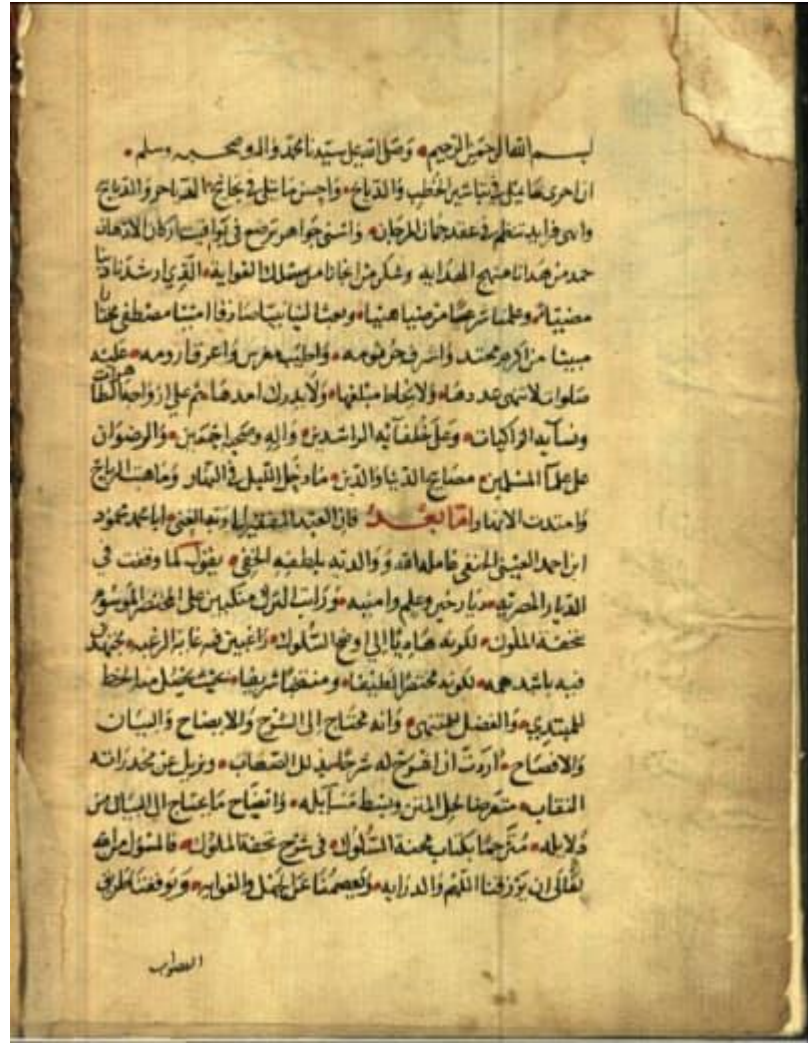 بسم الله الرحمن الرحيم وصلى الله على سيدنا محمد واله وصحبه وسلم
ان احرى ما يملى في تباشير الخطب والديباج واحسن ما يتلى في
وابهى فرايد تنظم في عقد جمان المرجان واسنى جواهر ترصع في يواقيت اركان الاذهان
حمد من هدانا منهج الهداية وشكر من اغاثنا من مسلك الغواية الذي ارشدنا دينا
وعلمنا شرعا مرضيا هنيا وبعث الينا نبيا صادقا امينا مصطفى مختارا
مبينا من اكرم محتد واشرف جرثومه واطيب مغرس واعرق ارومه عليه
صلوات لا ينتهى عددها ولا يحاط مبلغها ولا يدرك امدها ثم على ازواجه الطاهرات
ونسآيه الزاكيات وعلى خلفآيه الراشدين واله وصحبه اجمعين والرضوان
على علمآ المسلمين مصابيح الدنيا والدين ما دخل الليل في النهار وما هبت الرياح
وامتدت الانهار اما بعد فان العبد الفقير الى ربه الغنى ابا محمد محمود
ابن احمد العينى الحنفى عامله الله ووالديه بلطفه الخفى يقول لما وقفت في
الديار المصريه ديار خير وعلم وامنيه ورايت الترك منكبين على المختصر الموسوم
بتحفة الملوك لكونه هاديا الى اوضح السلوك راغبين فيه غاية الرغبه مجتهدين
فيه باشد همه لكونه مختصرا لطيفا ومنتخبا شريفا بحيث يحصل منه الحظ
للمبتدي والفضل للمنتهى وانه محتاج الى الشرح والايضاح والبيان
والافصاح اردت ان اشرح له شرحا يذلل الصعاب ويزيل عن مخدراته
النقاب متعرضا لحل المتن وبسط مسآيله وايضاح ما يحتاج الى البيان من
دلايله مترجما بكتاب منحة السلوك في شرح تحفة الملوك فالمسؤل من الله
تعالى ان يرزقنا الفهم والدرايه ويعصمنا عن الجهل والغوايه ويوفقنا طريق
الصواب